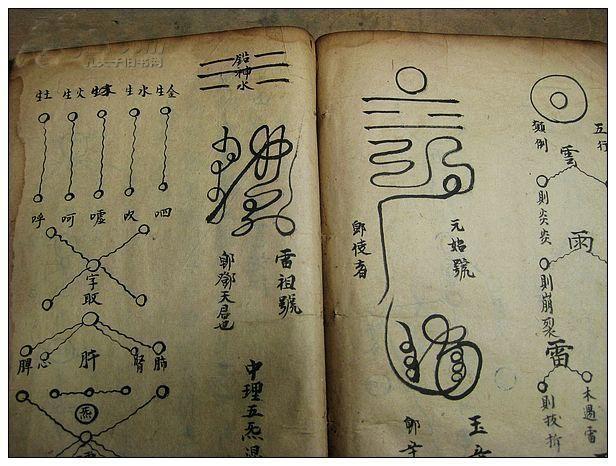 五行
類例
雲
則炎炎
雨
則崩裂
雷
木遇雷
則拔折
元始號
卽使者
玉
卽辛
鉛神水
雷祖號
卽鄧天君也
中理五炁混
金生 水生 木生 火生 土生
呬 吹 噓 呵 呼
字取
肺 腎 肝 心 脾
炁